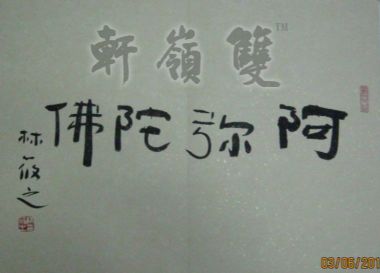 雙嶺軒™
阿弥陀佛
林筱之
03/06/201